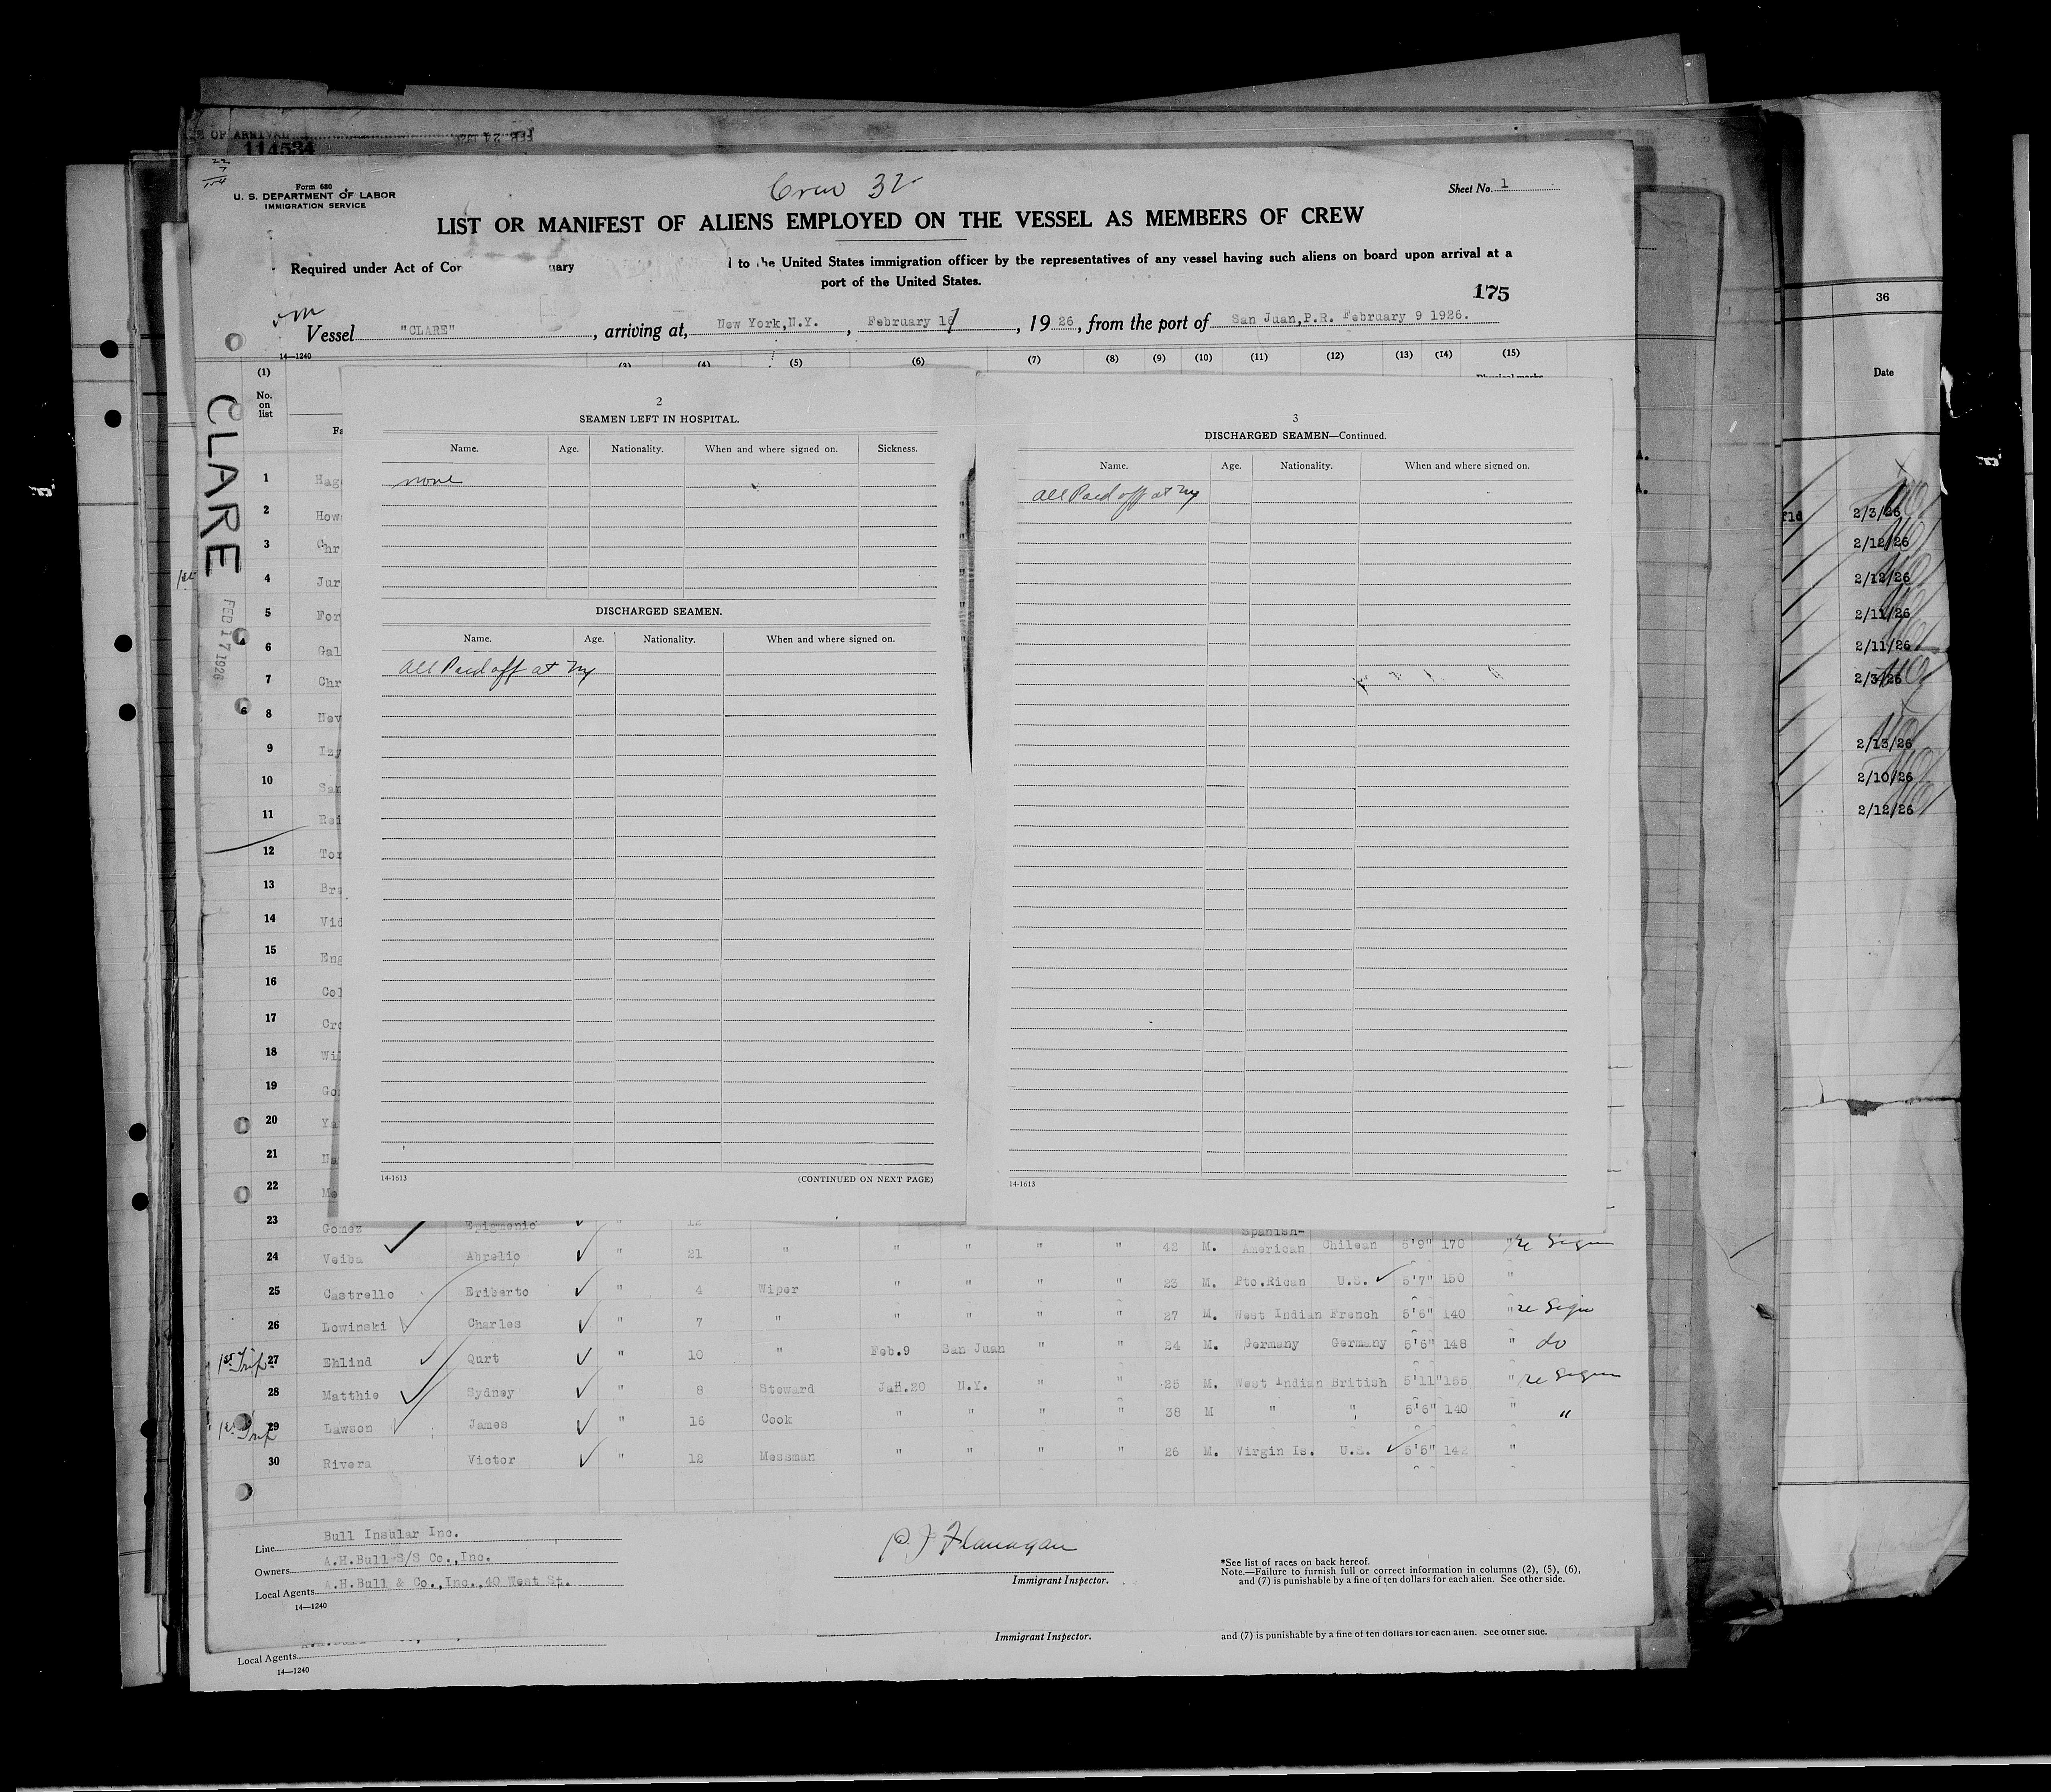 OF ARRIVAL FEB 24 192
114534
Form 680
U. S. DEPARTMENT OF LABOR
IMMIGRATION SERVICE
Crew 32
Sheet No. 1
LIST OR MANIFEST OF ALIENS EMPLOYED ON THE VESSEL AS MEMBERS OF CREW
Required under Act of Con uary to the United States immigration officer by the representatives of any vessel having such aliens on board upon arrival at a
port of the United States.
175
Vessel "CLARE", arriving at, New York,N.Y., February 17, 1926, from the port of San Juan,P.R. February 9 1926.
14—1240
(1) (3) (4) (5) (6) (7) (8) (9) (10) (11) (12) (13) (14) (15)
No. on list
CLARE
FEB 17 1926
2
SEAMEN LEFT IN HOSPITAL.
Name. Age. Nationality. When and where signed on. Sickness.
none
DISCHARGED SEAMEN.
Name. Age. Nationality. When and where signed on.
All Paid off at NY
14-1613
(CONTINUED ON NEXT PAGE)
3
DISCHARGED SEAMEN—Continued.
Name. Age. Nationality. When and where signed on.
All Paid off at NY
14-1613
1 Hag
2 How
3 Chr
4 Jur
5 For
6 Gal
7 Chr
8 Nev
9 Izy
10 San
11 Rei
12 Tor
13 Bra
14 Vid
15 Eng
16 Col
17 Cro
18 Wil
19 Go
20 Ya
21 Na
22 Me
23 Gomez Epigmenio " 12 Spanish-
24 Veiba Abrelio " 21 " " " " " 42 M. American Chilean 5'9" 170 " re Sign
25 Castrello Eriberto " 4 Wiper " " " " 23 M. Pto.Rican U.S. 5'7" 150 "
26 Lowinski Charles " 7 " " " " " 27 M. West Indian French 5'6" 140 " re Sign
1st Trip 27 Ehlind Qurt " 10 " Feb.9 San Juan " " 24 M. Germany Germany 5'6" 148 " do
28 Matthie Sydney " 8 Steward Jan.20 N.Y. " " 25 M. West Indian British 5'11" 155 " re Sign
1st Trip 29 Lawson James " 16 Cook " " " " 38 M " " 5'6" 140 " "
30 Rivera Victor " 12 Messman " " " " 26 M. Virgin Is. U.S. 5'5" 142 "
Line Bull Insular Inc.
Owners A.H.Bull S/S Co.,Inc.
Local Agents A.H.Bull & Co.,Inc.,40 West St.
14—1240
P J Flanagan
Immigrant Inspector.
*See list of races on back hereof.
Note.—Failure to furnish full or correct information in columns (2), (5), (6),
and (7) is punishable by a fine of ten dollars for each alien. See other side.
Local Agents
14—1240
Immigrant Inspector.
and (7) is punishable by a fine of ten dollars for each alien. See other side.
36
Date
2/3/26
2/12/26
2/12/26
2/11/26
2/11/26
2/3/26
2/13/26
2/10/26
2/12/26